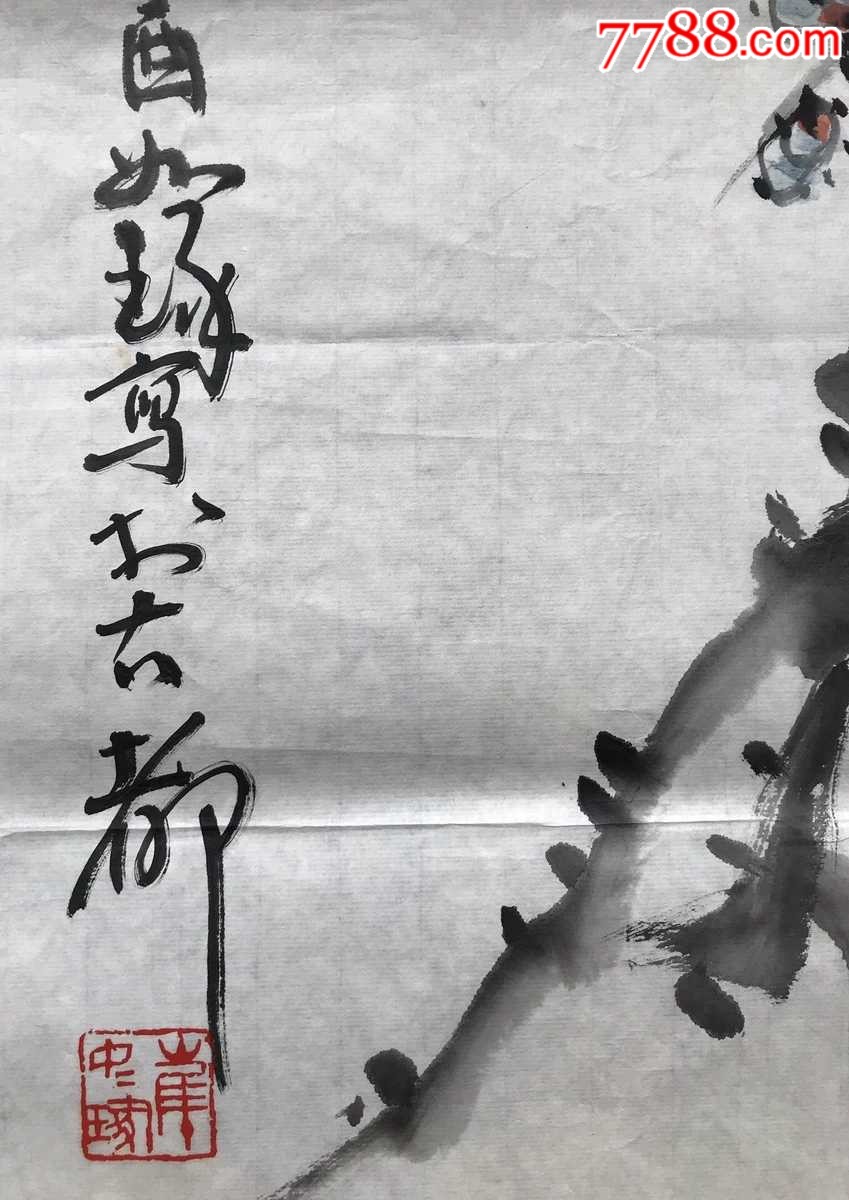 7788.com
酉如琢寫於古都